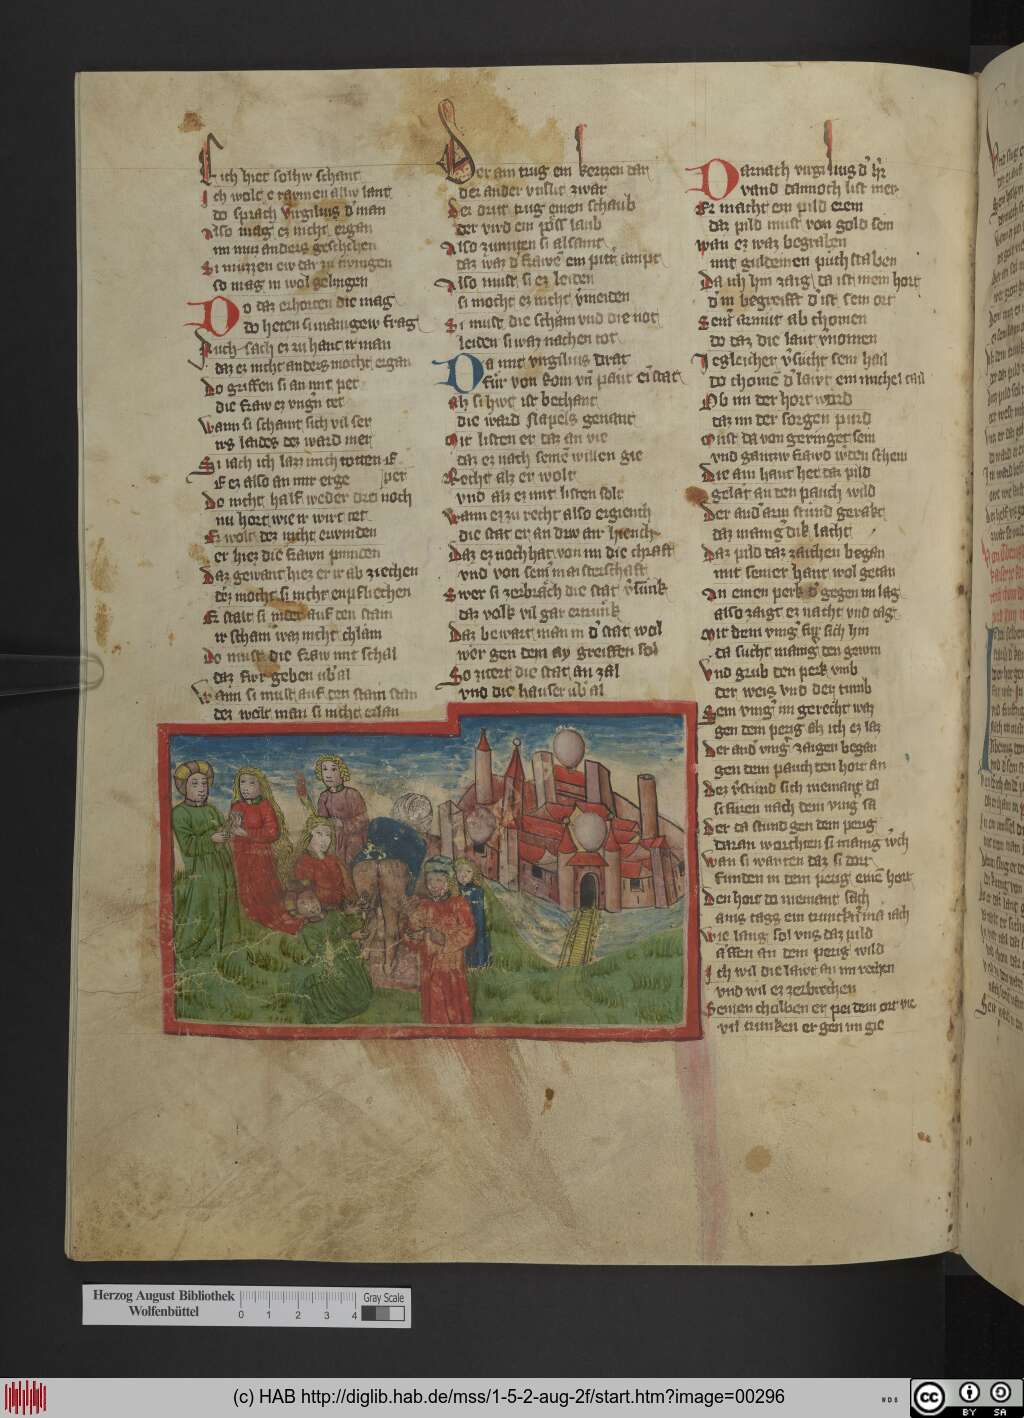 Lich hiet solhw schant
Ich wolt e raymen allw lant
do sprach virgilius d' man
Also mag ez nicht ergan
im nur anders geschehen
Si muzzen ew dar zu twingen
so mag in wol gelingen
Do daz erhorten die mag
do heten si manigew frag
Auch sach ez zu hant ir man
daz ez nicht anders mocht ergan
Do griffen si an mit pet
die fraw ez ungern tet
Wann si schamt sich vil ser
irs laides dez ward mer
Si iach ich lazz mich totten
e ez also an mir erge
Do nicht half weder dro noch pet
nu hort wie ir wirt tet
Er wolt dez nicht erwinden
er hiez die frawn pinnden
Daz gewant hiez er ir ab ziechen
dez mocht si nicht enpfliechen
Er stalt si nider auf den stain
ir scham waz nicht chlain
Do must die fraw mit schal
daz fiwr geben ub'al
Wann si must auf den stain stan
dez wolt man si nicht erlan
Der ain trug ein kertzen dar
der ander unslit zwar
Der dritt trug einen schaub
der vird ein poss laub
Also zunten si alsamt
daz waz d' frawe ein pitt' ampt
Also must si ez leiden
si mocht ez nicht v'meiden
Si must die scham und die not
leiden si waz nachen tot
Da mit virgilius drat
fur von Rom un paut ein stat
Alz si hwt ist bechant
die ward Napels genant
Mit listen er daz an vie
daz ez nach seine willen gie
Recht alz er wolt
und alz ez mit listen solt
Wann ez zu recht also ergiench
die stat er an drw air hiench
Daz ez noch hat von im die chraft
und von sein' maisterschaft
Swer si zerbrach die stat v'sunk
daz volk vil gar ertrunk
Daz bewart man in d' stat wol
wer gen dem ay greiffen sol
So zitert die stat an zal
und die hauser ub'al
Darnach virgilius d' h'r
vand dannoch list mer
Er macht ein pild erein
daz pild must von gold sein
Wan ez waz begraben
mit guldeinen puchstaben
Da ich hin zaig da ist mein hort
d' in begreifft d' ist sein ort
Sein' armut ab chomen
do daz die laut v'nomen
Iegleicher v'sucht sein hail
do chome d' lawt ein michel tail
Ob im der hort wurd
daz im der sorgen purd
Must da von geringet sein
und gantzw frawd w'den schein
Die ain hant het daz pild
gelat an den pauch wild
Der and' arm stund gerakt
daz manig' dik lacht
Daz pild daz zaichen began
mit seiner hant wol getan
An einen perk d' gegen im lag
also zaigt ez nacht und tag
Mit dem ving' fur sich hin
da sucht manig den gewin
Und grub den perk umb
der weis und der tumb
Sein ving' im gerecht waz
gen dem perg alz ich ez laz
Der and' ving' zaigen began
gen dem pauch den hort an
Dez v'stund sich niemant da
si furen nach dem ving' sa
Der da stund gen dem perg
daran worchten si manig w'ch
Wan si wanten daz si dort
funden in dem perg eine hort
Den hort do niemant sach
ains tags ein trunckn' ma iach
Wie lang sol uns daz pild
affen an dem perg wild
Ich wil die lawt an im rechen
und wil ez zerbrechen
Seinen cholben er pei dem ort vie
vil trunken er gen im gie
Herzog August Bibliothek
Wolfenbüttel
0 1 2 3 4
Gray Scale
(c) HAB http://diglib.hab.de/mss/1-5-2-aug-2f/start.htm?image=00296
WDB
cc BY SA